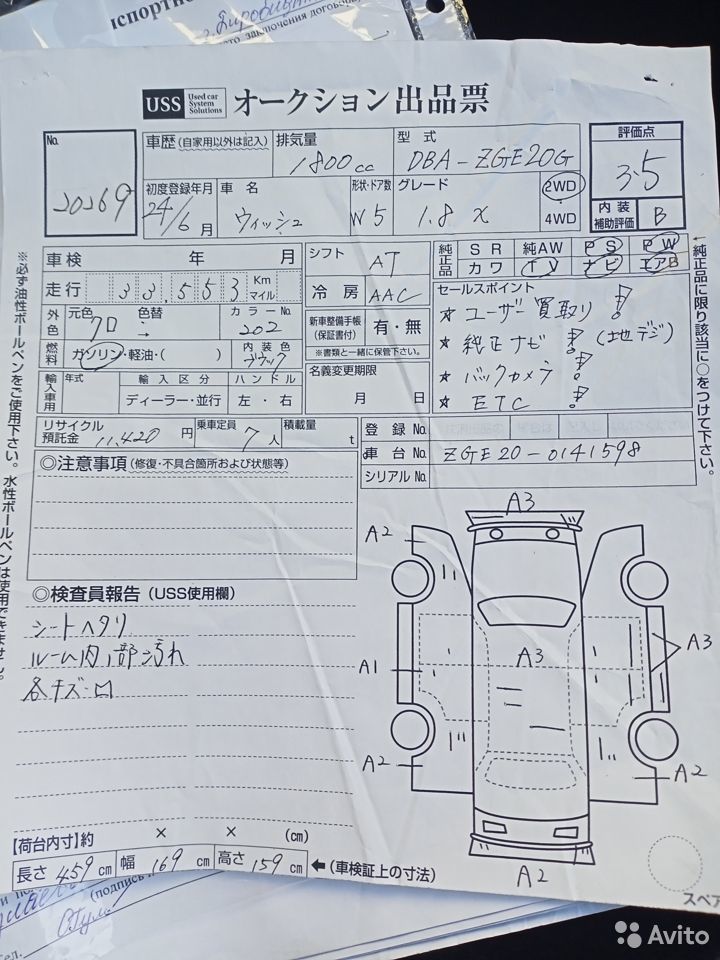 USS Used car System Solutions オークション出品票
No. 20269
車歴 (自家用以外は記入)
排気量 1800cc
型式 DBA-ZGE20G
評価点 3.5
内装補助評価 B
初度登録年月 24年/6月
車名 ウィッシュ
形状・ドア数 W5
グレード 1.8 X
2WD
4WD
車検 年 月
走行 33,553 Km マイル
シフト AT
冷房 AAC
純正品 SR 純AW PS PW
カワ TV ナビ エアB
外色 元色 クロ 色替
カラーNo. 202
燃料 ガソリン・軽油・( )
内装色 ブラック
新車整備手帳(保証書付) 有・無
※書類と一緒に保管下さい。
セールスポイント
★ ユーザー買取り!
★ 純正ナビ! (地デジ)
★ バックカメラ!
★ ETC!
輸入車用 年式 輸入区分 ディーラー・並行 ハンドル 左・右
名義変更期限 月 日
リサイクル預託金 11,420円
乗車定員 7人
積載量 t
登録No.
車台No. ZGE20-0141598
シリアルNo.
◎注意事項(修復・不具合箇所および状態等)
◎検査員報告(USS使用欄)
シートヘタリ
ルーム内1部汚れ
各キズ凹
A3
A2
A3
A3
A1
A2
A2
A2
【荷台内寸】約 × × (cm)
長さ 459cm 幅 169cm 高さ 159cm ←(車検証上の寸法)
スペア
※必ず油性ボールペンをご使用下さい。水性ボールペンは使用できません。
純正品に限り該当に○をつけて下さい。
(подпись
Avito